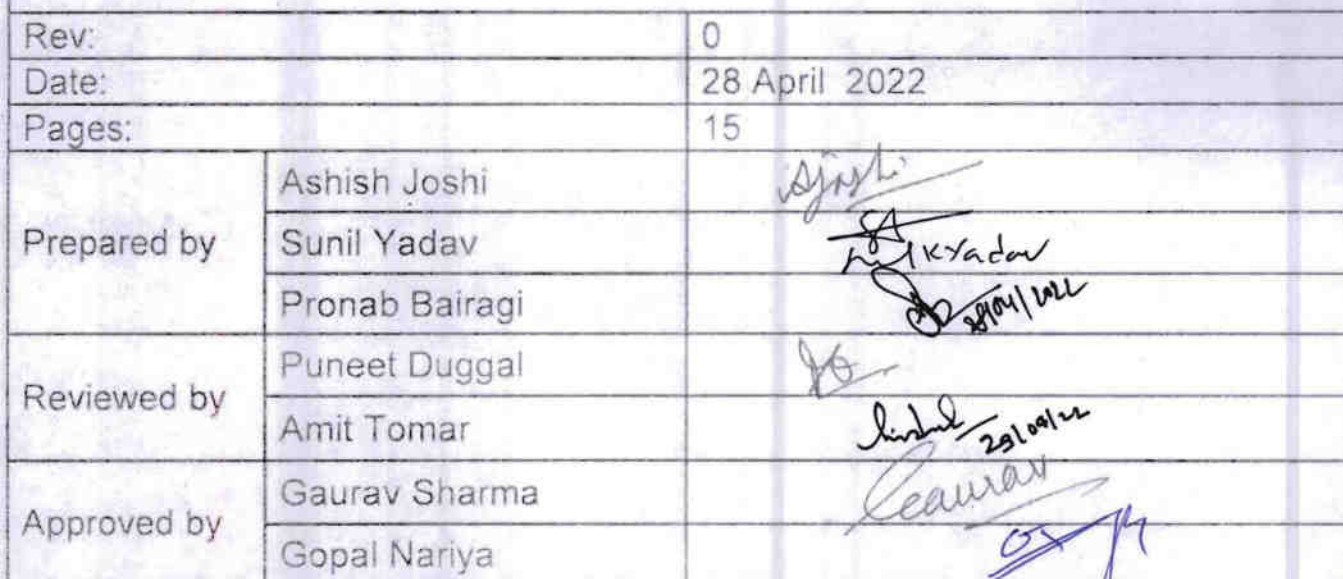 Rev: 0
Date: 28 April 2022
Pages: 15
Prepared by
Ashish Joshi Ajoshi
Sunil Yadav KYadav
Pronab Bairagi
Reviewed by
Puneet Duggal
Amit Tomar
Approved by
Gaurav Sharma Gaurav
Gopal Nariya